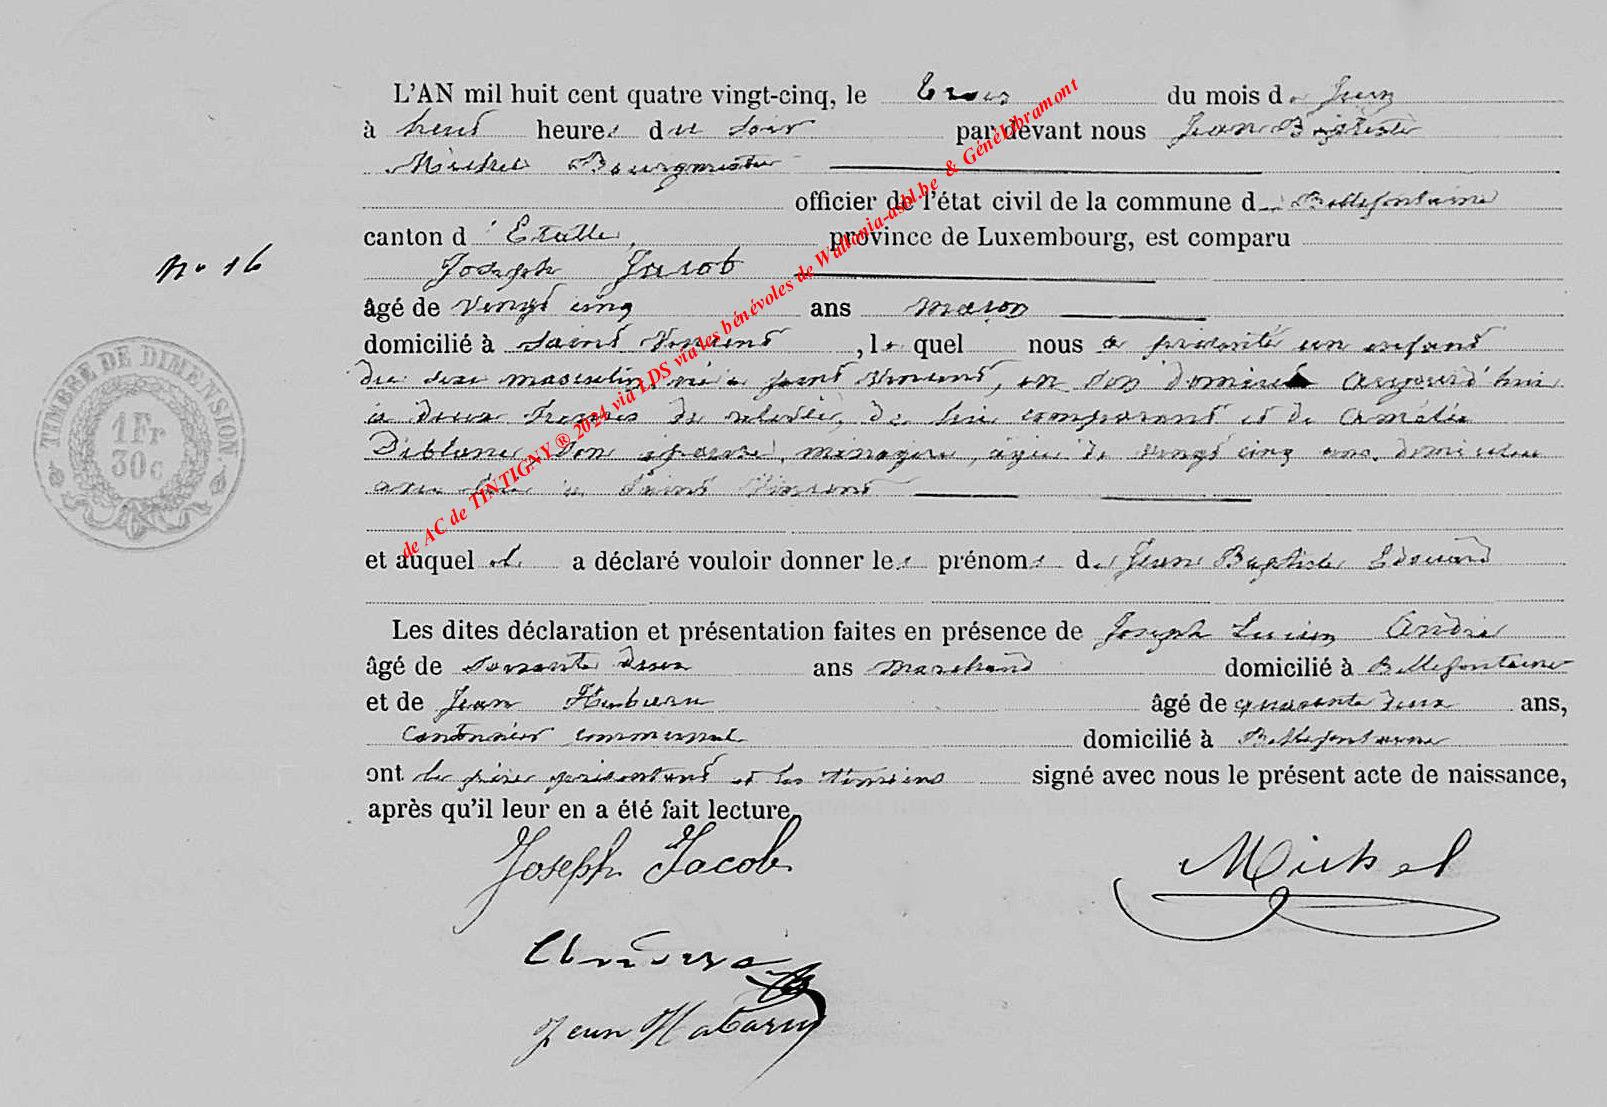 L'AN mil huit cent quatre vingt-cinq, le trois du mois de Juin
à heures du soir par devant nous Jean Baptiste
Michel Bourgmestre
officier de l'état civil de la commune de Bellefontaine
canton d'Etalle, province de Luxembourg, est comparu
No 16
Joseph Jacob
âgé de vingt cinq ans maçon
domicilié à Saint Vincent, le quel nous a présenté un enfant
du sexe masculin né à Saint Vincent, en son domicile aujourd'hui
à deux heures de relevée, de lui comparant et de Amélie
son épouse, ménagère, âgée de vingt cinq ans, domiciliée
avec lui à Saint Vincent
et auquel il a déclaré vouloir donner les prénoms de Jean Baptiste Edouard
Les dites déclaration et présentation faites en présence de Joseph Lucien André
âgé de soixante deux ans marchand domicilié à Bellefontaine
et de Jean âgé de quarante deux ans,
Cantonnier communal domicilié à Bellefontaine
ont le père présentant et les témoins signé avec nous le présent acte de naissance,
après qu'il leur en a été fait lecture.
Joseph Jacob
Michel
Jean
TIMBRE DE DIMENSION
1Fr
30c
de AC de TINTIGNY ® 2024 via LDS via les bénévoles de Wallonia-asbl.be & GénéLibramont